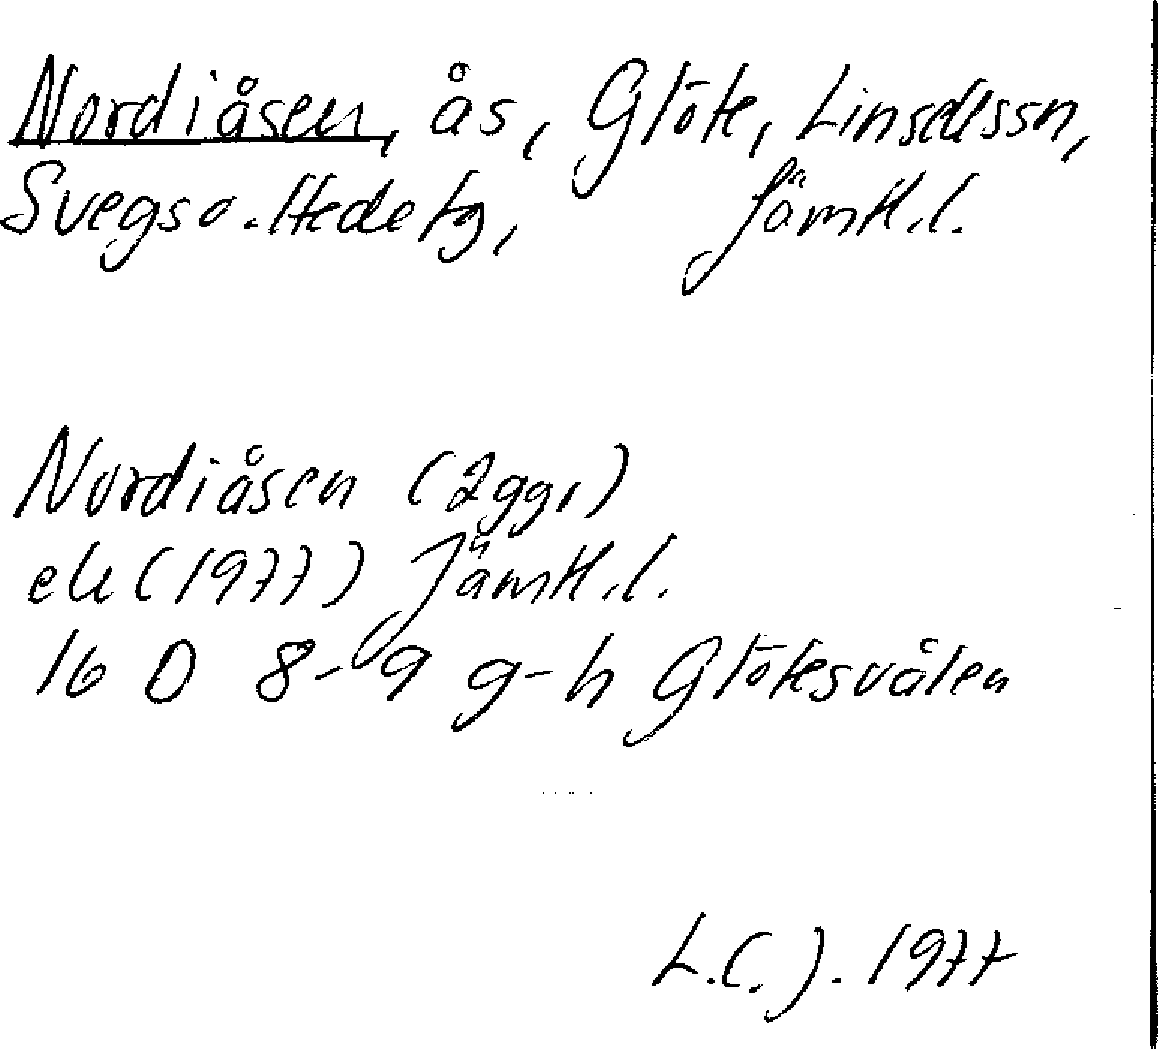 Nordiåsen, ås, Glöte, Linsellssn,
Svegs o. Hede tg, Jämtl.l.
Nordiåsen (2ggr)
ek (1977) Jämtl.l.
16 D 8-9 g-h Glötesvålen
L.C.J. 1977